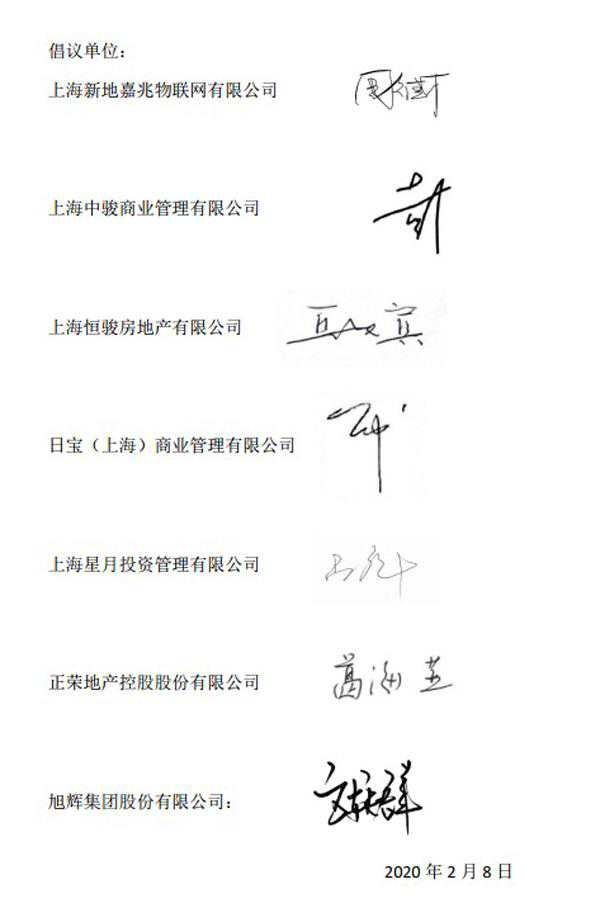 倡议单位：
上海新地嘉兆物联网有限公司
上海中骏商业管理有限公司
上海恒骏房地产有限公司
日宝（上海）商业管理有限公司
上海星月投资管理有限公司
正荣地产控股股份有限公司
旭辉集团股份有限公司：
2020 年 2 月 8 日